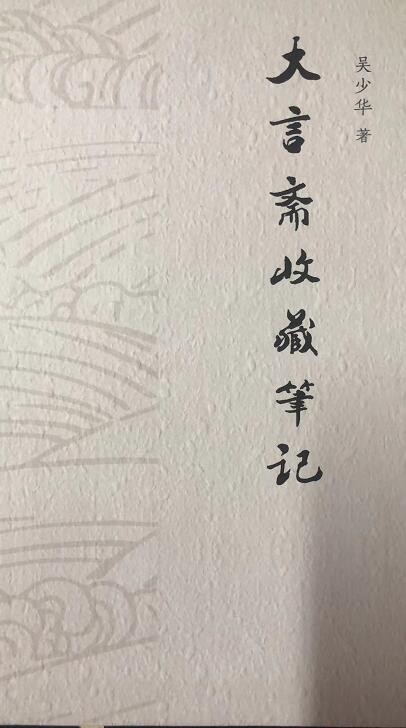 吴少华 著
大言斋收藏筆记